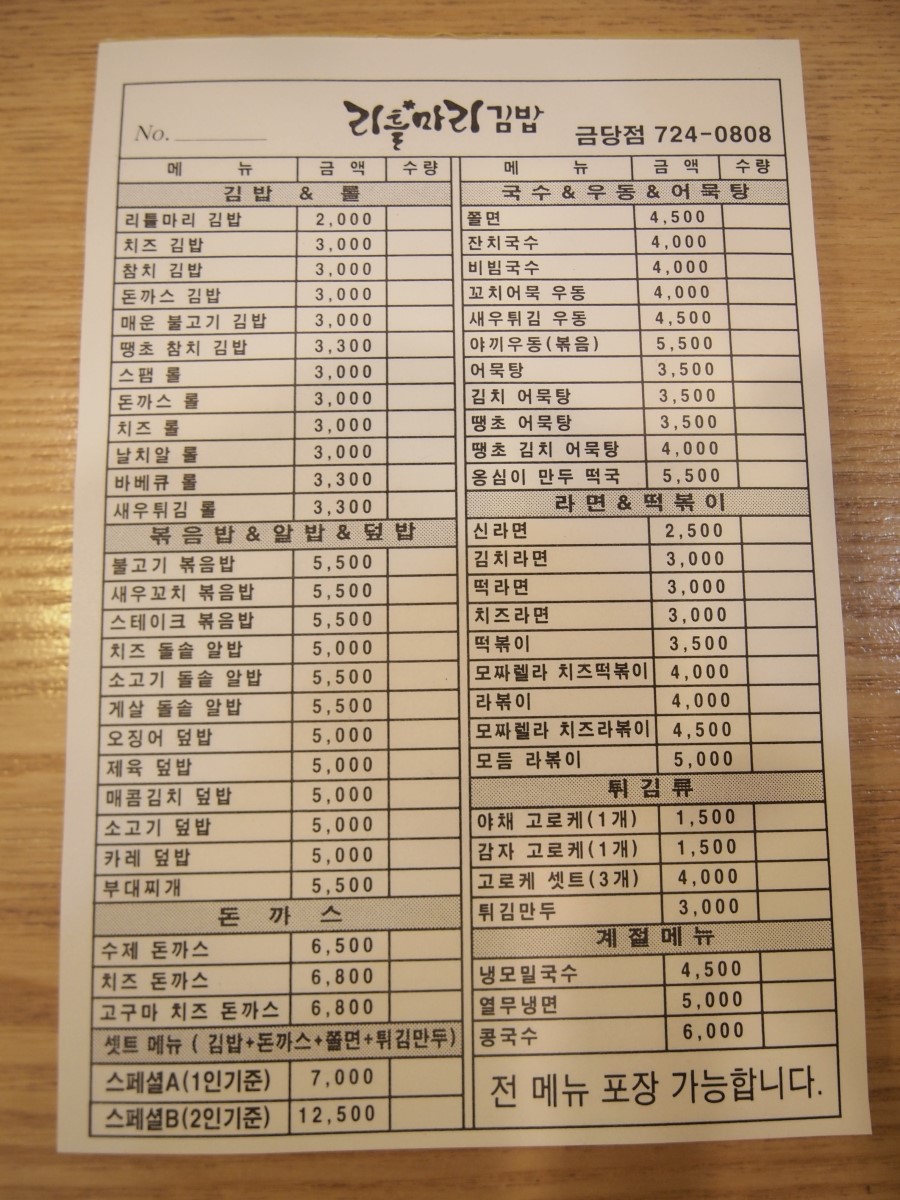 No.
리틀마리김밥
금당점 724-0808
메 뉴 금 액 수량
김밥 & 롤
리틀마리 김밥 2,000
치즈 김밥 3,000
참치 김밥 3,000
돈까스 김밥 3,000
매운 불고기 김밥 3,000
땡초 참치 김밥 3,300
스팸 롤 3,000
돈까스 롤 3,000
치즈 롤 3,000
날치알 롤 3,000
바베큐 롤 3,300
새우튀김 롤 3,300
볶음밥&알밥&덮밥
불고기 볶음밥 5,500
새우꼬치 볶음밥 5,500
스테이크 볶음밥 5,500
치즈 돌솥 알밥 5,000
소고기 돌솥 알밥 5,500
게살 돌솥 알밥 5,500
오징어 덮밥 5,000
제육 덮밥 5,000
매콤김치 덮밥 5,000
소고기 덮밥 5,000
카레 덮밥 5,000
부대찌개 5,500
돈 까 스
수제 돈까스 6,500
치즈 돈까스 6,800
고구마 치즈 돈까스 6,800
셋트 메뉴 ( 김밥+돈까스+쫄면+튀김만두)
스페셜A(1인기준) 7,000
스페셜B(2인기준) 12,500
메 뉴 금 액 수량
국수&우동&어묵탕
쫄면 4,500
잔치국수 4,000
비빔국수 4,000
꼬치어묵 우동 4,000
새우튀김 우동 4,500
야끼우동(볶음) 5,500
어묵탕 3,500
김치 어묵탕 3,500
땡초 어묵탕 3,500
땡초 김치 어묵탕 4,000
옹심이 만두 떡국 5,500
라면&떡볶이
신라면 2,500
김치라면 3,000
떡라면 3,000
치즈라면 3,000
떡볶이 3,500
모짜렐라 치즈떡볶이 4,000
라볶이 4,000
모짜렐라 치즈라볶이 4,500
모듬 라볶이 5,000
튀김류
야채 고로케(1개) 1,500
감자 고로케(1개) 1,500
고로케 셋트(3개) 4,000
튀김만두 3,000
계절메뉴
냉모밀국수 4,500
열무냉면 5,000
콩국수 6,000
전 메뉴 포장 가능합니다.